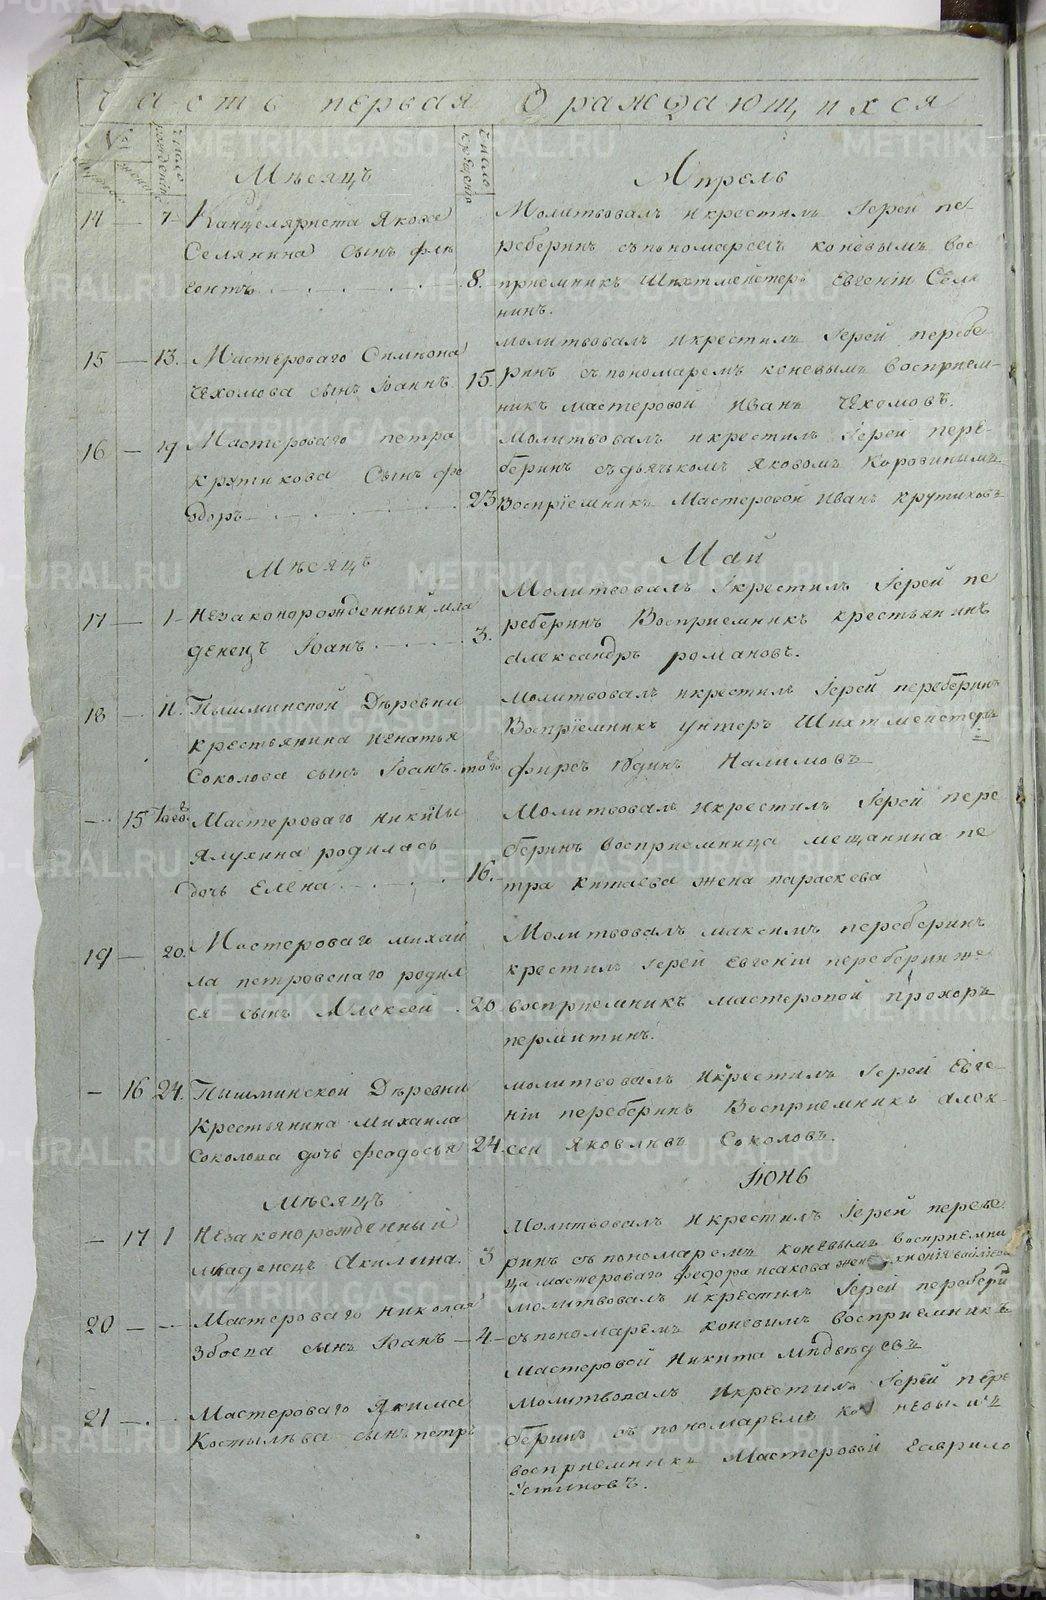 Часть первая О раждающихся
№
Число рождения
Число крещения
Мѣсяцъ Апрель
14 — 7 Канцеляриста Якова
Селянина сынъ фле
гонтъ 8.
Молитвовалъ и крестилъ Іерей пе-
реберинъ съ пономаремъ коневымъ вос
приемникъ Шихтмейстеръ Евгеніи Селя
нинъ.
15 — 13. Мастероваго Симиона
Чехомова сынъ Іоаннъ 15.
молитвовалъ и крестилъ Іерей перебе-
ринъ съ пономаремъ коневымъ восприем-
никъ мастеровой Иванъ Чехомовъ.
16 — 19 Мастероваго петра
крутикова Сынъ фе
одоръ 23
Молитвовалъ и крестилъ Іерей пере-
беринъ съ дьячькомъ яковомъ Коровинымъ
Восприемникъ Мастеровой Иванъ крутиковъ
Мѣсяцъ Май
17 — 1 — Незаконорожденный мла
денецъ Іоанъ 3.
Молитвовалъ И крестилъ Іерей пе
реберинъ Восприемникъ крестьянинъ
Александръ романовъ.
18 — 11. Пышминской Деревни
крестьянина Игнатья
Соколова сынъ Іоанъ. того
молитвовалъ и крестилъ Іерей переберинъ
Восприемникъ унтеръ Шихтмейстеръ
Налимовъ
— 15 Мастероваго никиты
Ялухина родилась
дочь Елена 16.
Молитвовалъ И крестилъ Іерей пере
беринъ восприемница мещанина пе
тра китаева жена параскева
19 — 20. Мастероваго михай
ла петровскаго родил
ся сынъ Алексей 20
Молитвовалъ максимъ переберинъ
крестилъ Іерей Евгеніи переберинъ же
восприемникъ мастеровой прохоръ
пермитинъ.
— 16 24. Пышминской Деревни
Крестьянина михаила
Соколова дочь феодосья 24.
молитвовалъ И крестилъ Іерей Евге-
ніи переберинъ Восприемникъ алек-
сеи яковливъ Соколовъ.
Мѣсяцъ Іюнь
— 17 1 Незаконорожденный
младенецъ Акилина. 3
Молитвовалъ И крестилъ Іерей перебе
ринъ съ пономаремъ коневымъ восприемни
ца мастероваго федора исакова жена
20 — — Мастероваго николая
Збоева сынъ Іоанъ — 4 —
молитвовалъ И крестилъ Іерей перебери
съ пономаремъ коневимъ восприемникъ
мастеровой Никита медведевъ
21 — Мастероваго Якима
Костылева сынъ петръ
Молитвовалъ И крестилъ Іерей пере
беринъ съ пономаремъ коневымъ
восприемникъ Мастеровой гаврило
Устиновъ.
METRIKI.GASO-URAL.RU